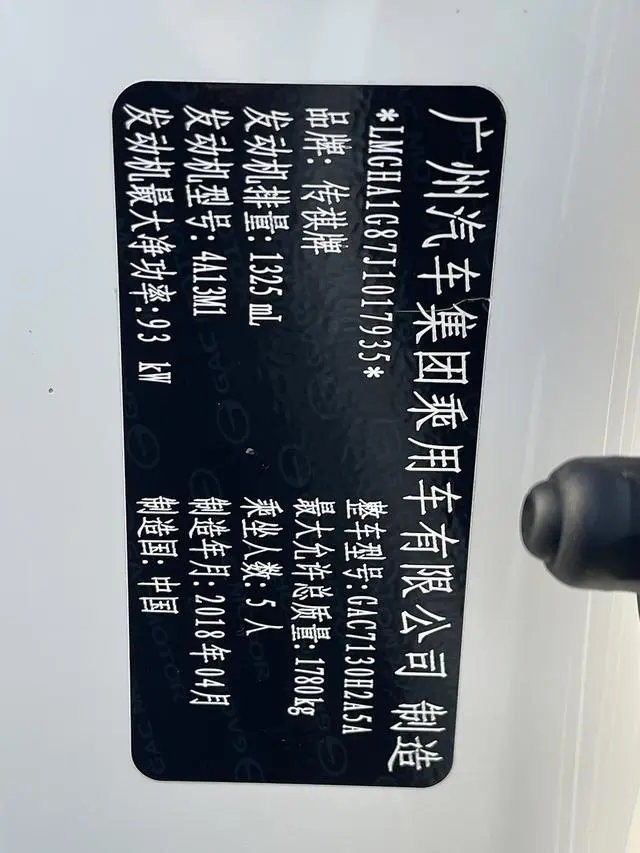 广州汽车集团乘用车有限公司 制造
*LMGHA1G87J1017935*
整车型号:GAC7130H2A5A
品牌: 传祺牌
最大允许总质量:1780kg
发动机排量: 1325 mL
乘坐人数: 5 人
发动机型号: 4A13M1
制造年月: 2018年04月
发动机最大净功率:93 kW
制造国: 中国